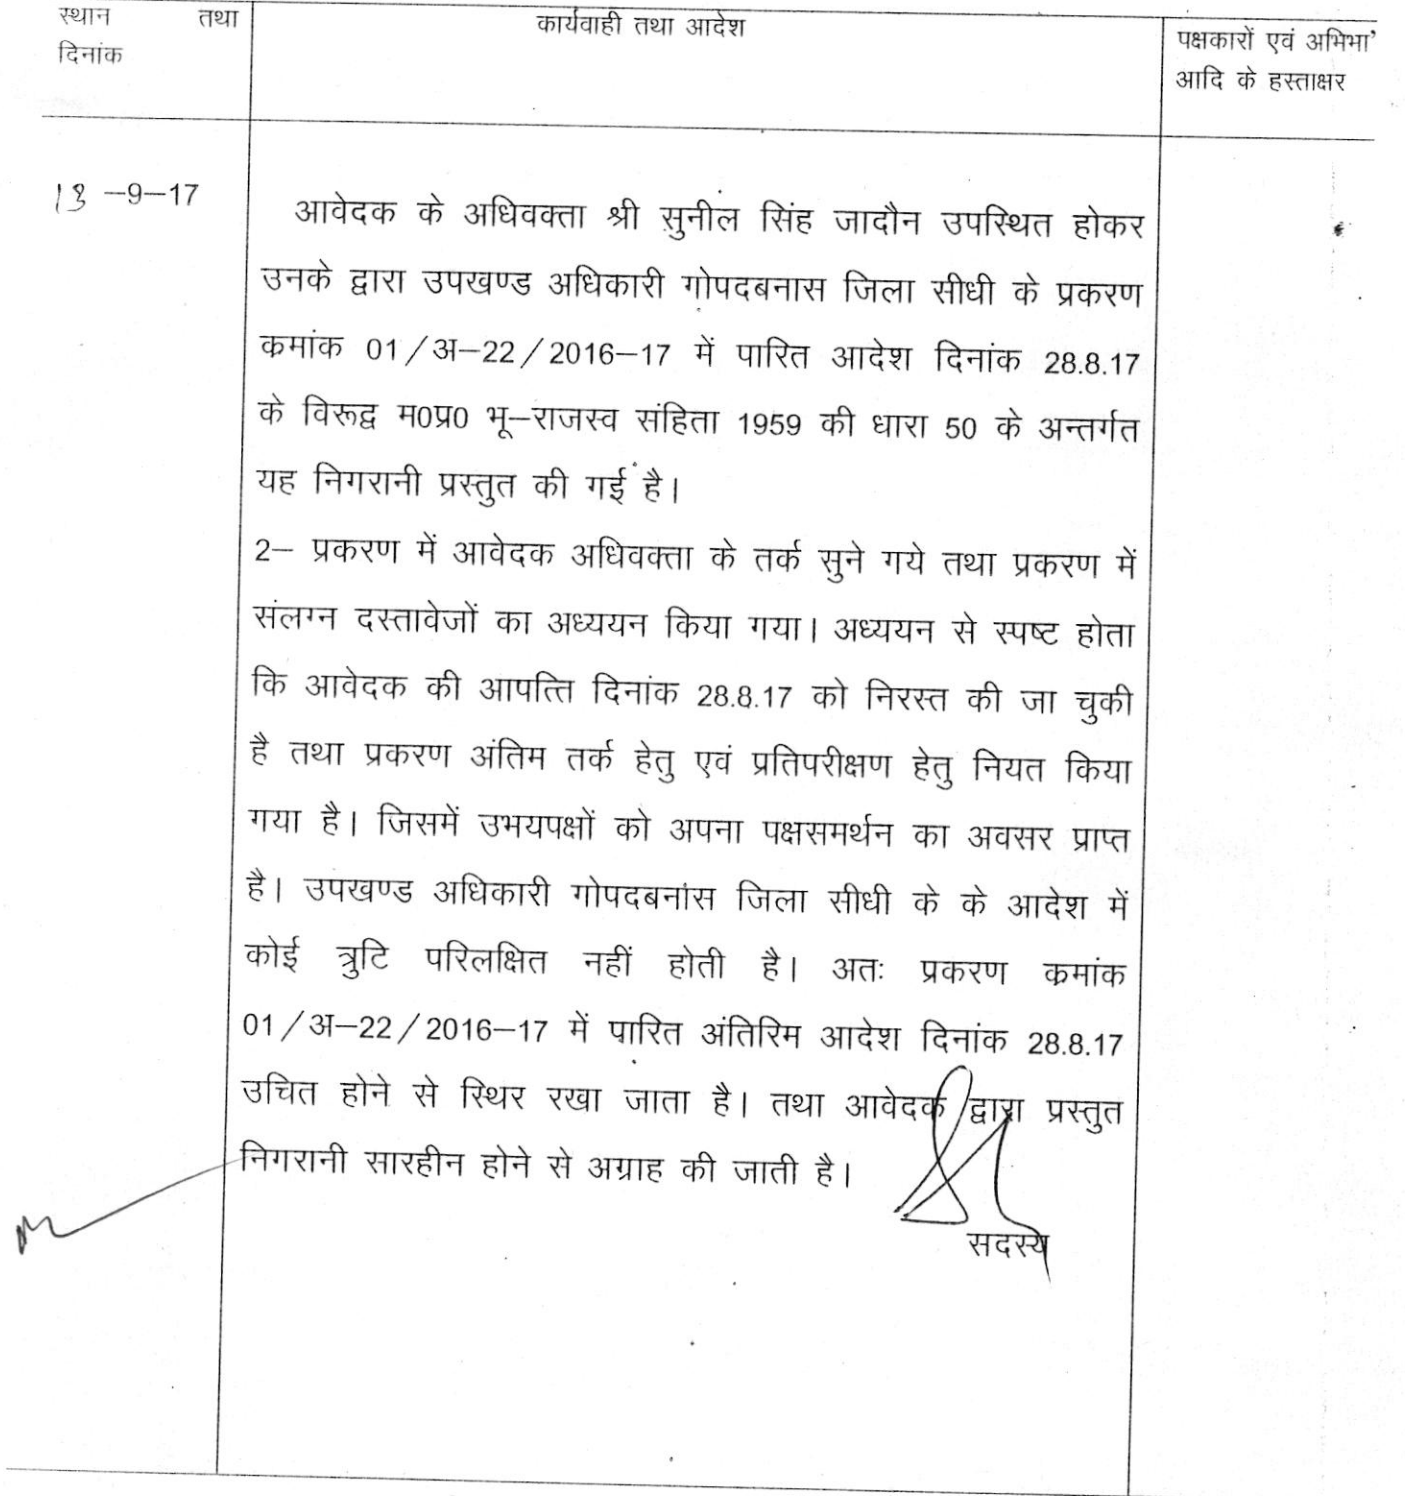 स्थान तथा
दिनांक
कार्यवाही तथा आदेश
पक्षकारों एवं अभिभा'
आदि के हस्ताक्षर
13 –9–17
आवेदक के अधिवक्ता श्री सुनील सिंह जादौन उपस्थित होकर
उनके द्वारा उपखण्ड अधिकारी गोपदबनास जिला सीधी के प्रकरण
कमांक 01/अ–22/2016–17 में पारित आदेश दिनांक 28.8.17
के विरूद्व म0प्र0 भू–राजस्व संहिता 1959 की धारा 50 के अन्तर्गत
यह निगरानी प्रस्तुत की गई है।
2– प्रकरण में आवेदक अधिवक्ता के तर्क सुने गये तथा प्रकरण में
संलग्न दस्तावेजों का अध्ययन किया गया। अध्ययन से स्पष्ट होता
कि आवेदक की आपत्ति दिनांक 28.8.17 को निरस्त की जा चुकी
है तथा प्रकरण अंतिम तर्क हेतु एवं प्रतिपरीक्षण हेतु नियत किया
गया है। जिसमें उभयपक्षों को अपना पक्षसमर्थन का अवसर प्राप्त
है। उपखण्ड अधिकारी गोपदबनांस जिला सीधी के के आदेश में
कोई त्रुटि परिलक्षित नहीं होती है। अतः प्रकरण कमांक
01/अ–22/2016–17 में पारित अंतिरिम आदेश दिनांक 28.8.17
उचित होने से स्थिर रखा जाता है। तथा आवेदक द्वारा प्रस्तुत
निगरानी सारहीन होने से अग्राह की जाती है।
सदस्य